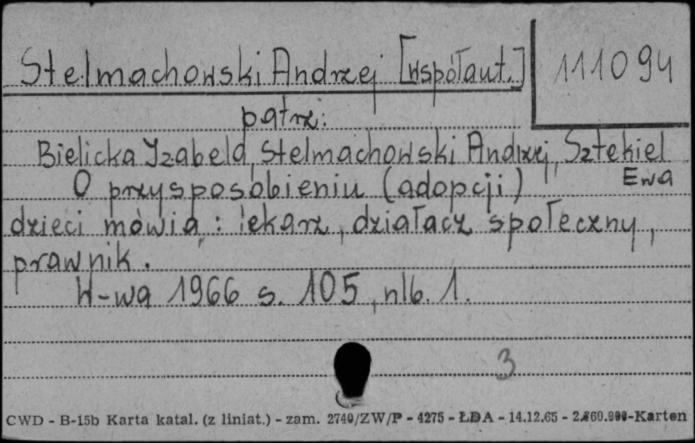 Stelmachowski Andrzej [współaut.] 111094
patrz:
Bielicka Izabela, Stelmachowski Andrzej, Sztekiel
Ewa
O przysposobieniu (adopcji)
dzieci mówią: lekarz, działacz społeczny,
prawnik.
W-wa 1966 s. 105, nlb. 1.
3
CWD - B-15b Karta katal. (z liniat.) - zam. 2740/ZW/P - 4275 - ŁDA - 14.12.65 - 2.860.000-Karten